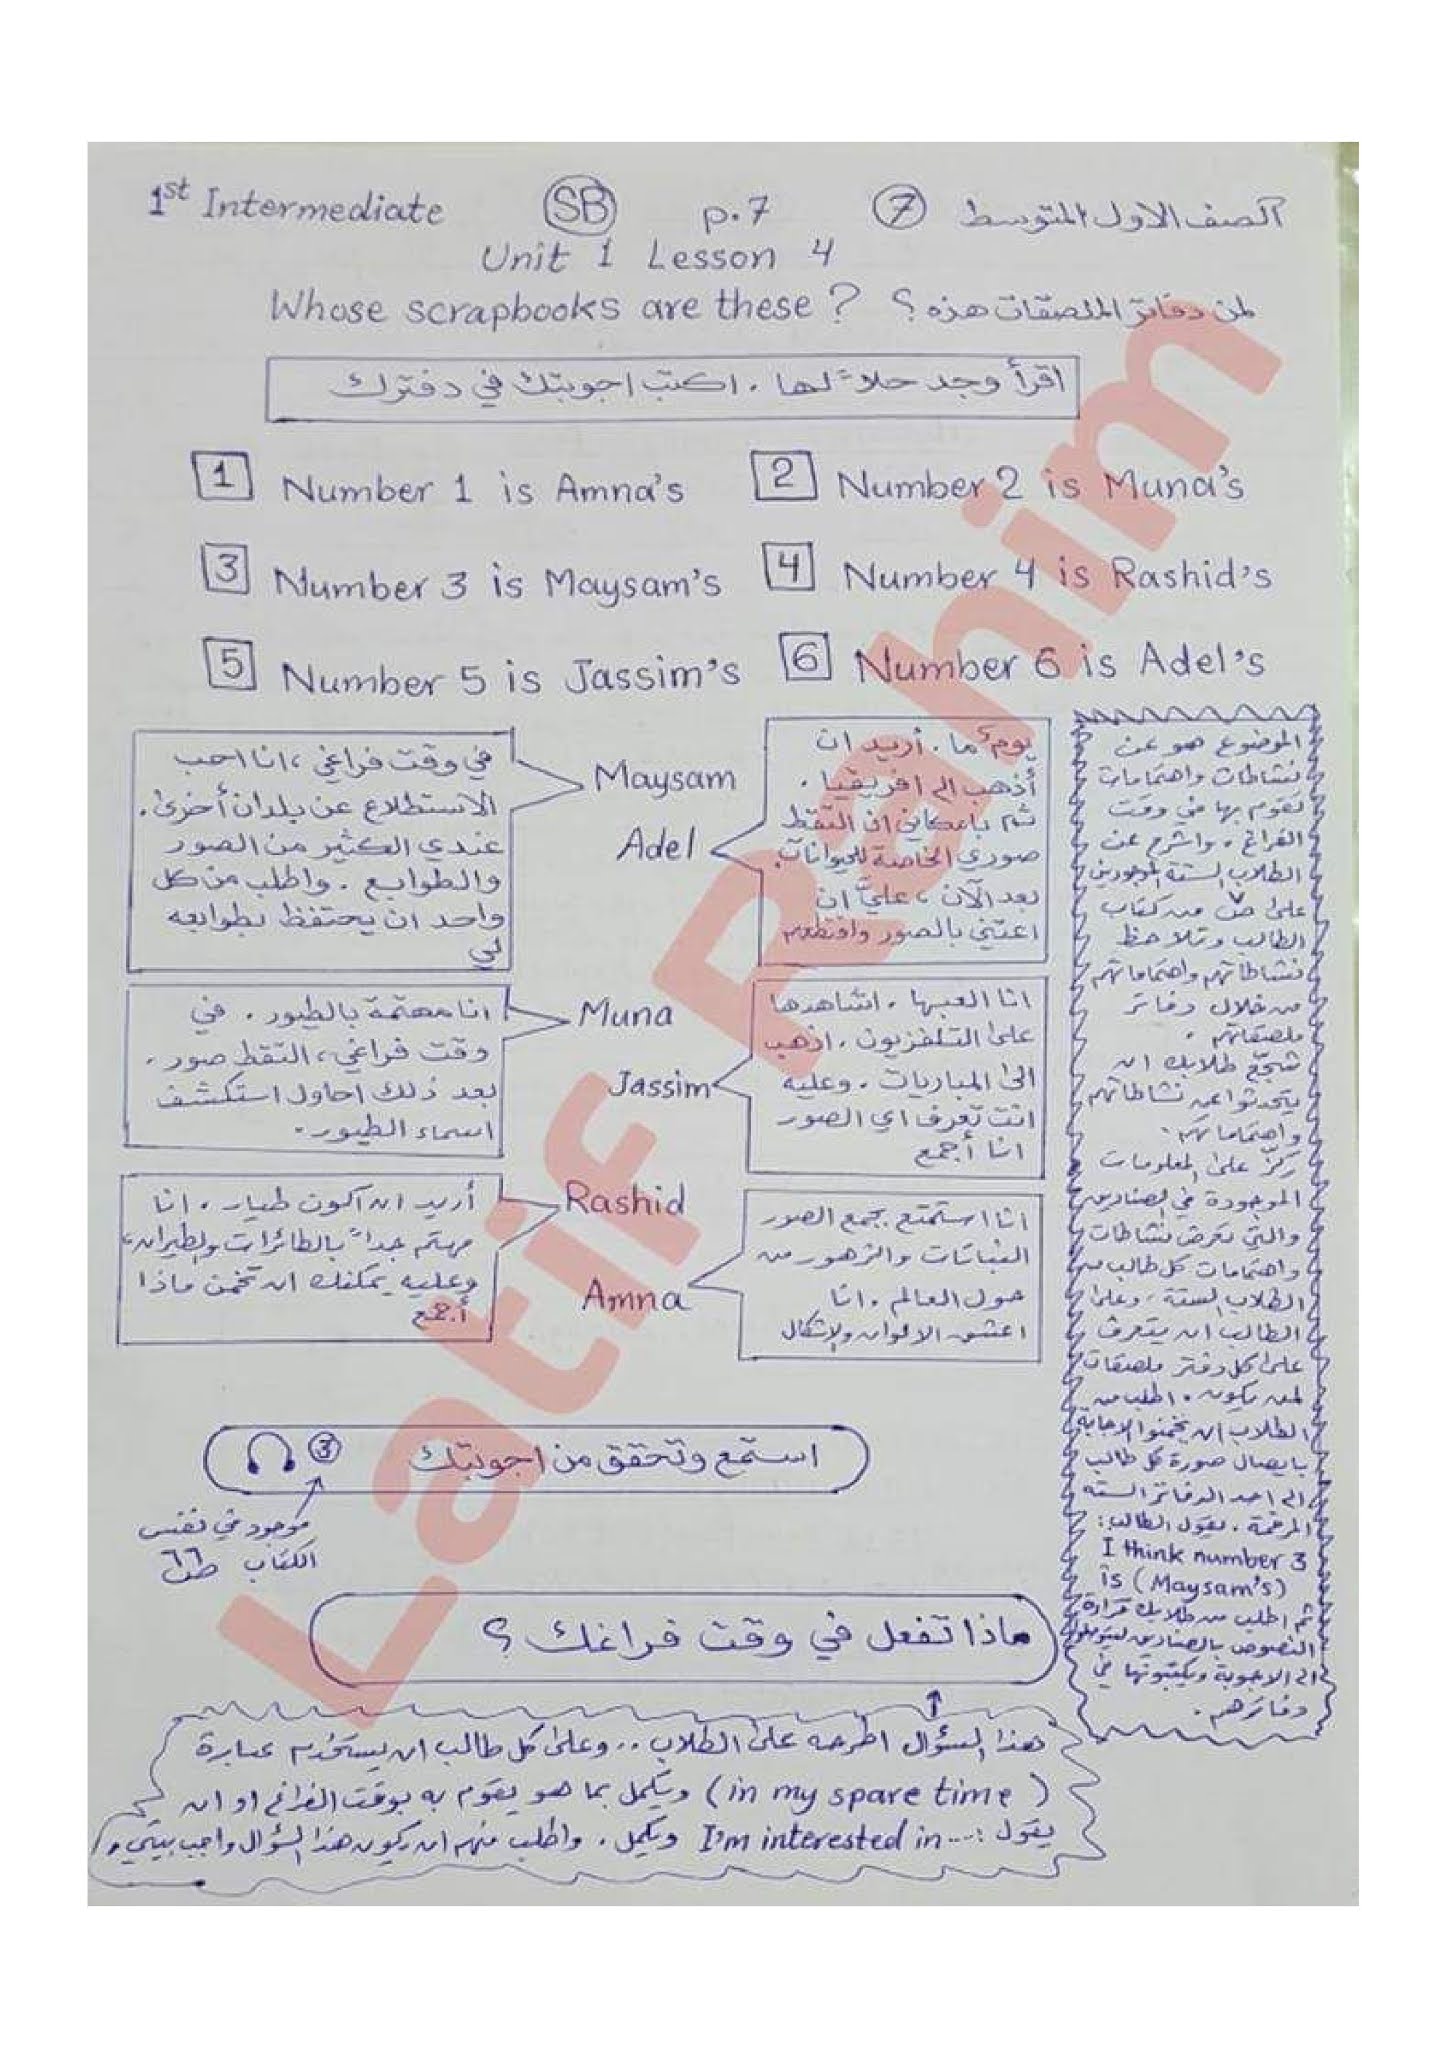 1st Intermediate SB p.7 7 الصف الاول المتوسط
Unit 1 Lesson 4
Whose scrapbooks are these? لمن دفاتر الملصقات هذه؟
اقرأ وجد حلاً لها. اكتب اجوبتك في دفترك
1 Number 1 is Amna's
2 Number 2 is Muna's
3 Number 3 is Maysam's
4 Number 4 is Rashid's
5 Number 5 is Jassim's
6 Number 6 is Adel's
Maysam
في وقت فراغي، انا احب
الاستطلاع عن بلدان أخرى.
عندي الكثير من الصور
والطوابع. واطلب من كل
واحد ان يحتفظ بطوابعه
لي
Adel
يومٌ ما. أريد ان
أذهب الى افريقيا.
ثم بامكاني ان التقط
صوري الخاصة للحيوانات
بعد الآن، عليَّ ان
اعتني بالصور واقتطعهم
Muna
انا مهتمة بالطيور. في
وقت فراغي، التقط صور.
بعد ذلك احاول استكشف
اسماء الطيور.
Jassim
انا العبها. اشاهدها
على التلفزيون. اذهب
الى المباريات. وعليه
انت تعرف اي الصور
انا أجمع
Rashid
أريد ان اكون طيار. انا
مهتم جداً بالطائرات والطيران،
وعليه يمكنك ان تخمن ماذا
أجمع
Amna
انا استمتع بجمع الصور
النباتات والزهور من
حول العالم. انا
اعشق الالوان والاشكال
الموضوع هو عن
نشاطات واهتمامات
تقوم بها في وقت
الفراغ. واشرح عن
الطلاب الستة الموجودين
على ص٧ من كتاب
الطالب وتلاحظ
نشاطاتهم واهتماماتهم
من خلال دفاتر
ملصقاتهم.
شجّع طلابك ان
يتحدثوا عن نشاطاتهم
واهتماماتهم.
ركّز على المعلومات
الموجودة في الصناديق
والتي تعرض نشاطات
واهتمامات كل طالب من
الطلاب الستة. وعلى
الطالب ان يتعرف
على كل دفتر ملصقات
لمن يكون. اطلب من
الطلاب ان يخمنوا الاجابة
بايصال صورة كل طالب
الى احد الدفاتر الستة
المرقمة. يقول الطالب:
I think number 3
is (Maysam's)
ثم اطلب من طلابك قراءة
النصوص بالصناديق ليتوصلوا
الى الاجوبة ويكتبونها في
دفاترهم.
استمع وتحقق من اجوبتك 3
موجود في نفس
الكتاب ص٦٦
ماذا تفعل في وقت فراغك؟
هذا السؤال اطرحه على الطلاب.. وعلى كل طالب ان يستخدم عبارة
(in my spare time) ويكمل بما هو يقوم به بوقت الفراغ او ان
يقول: I'm interested in.... ويكمل. واطلب منهم ان يكون هذا السؤال واجب بيتي
Latif Rahim